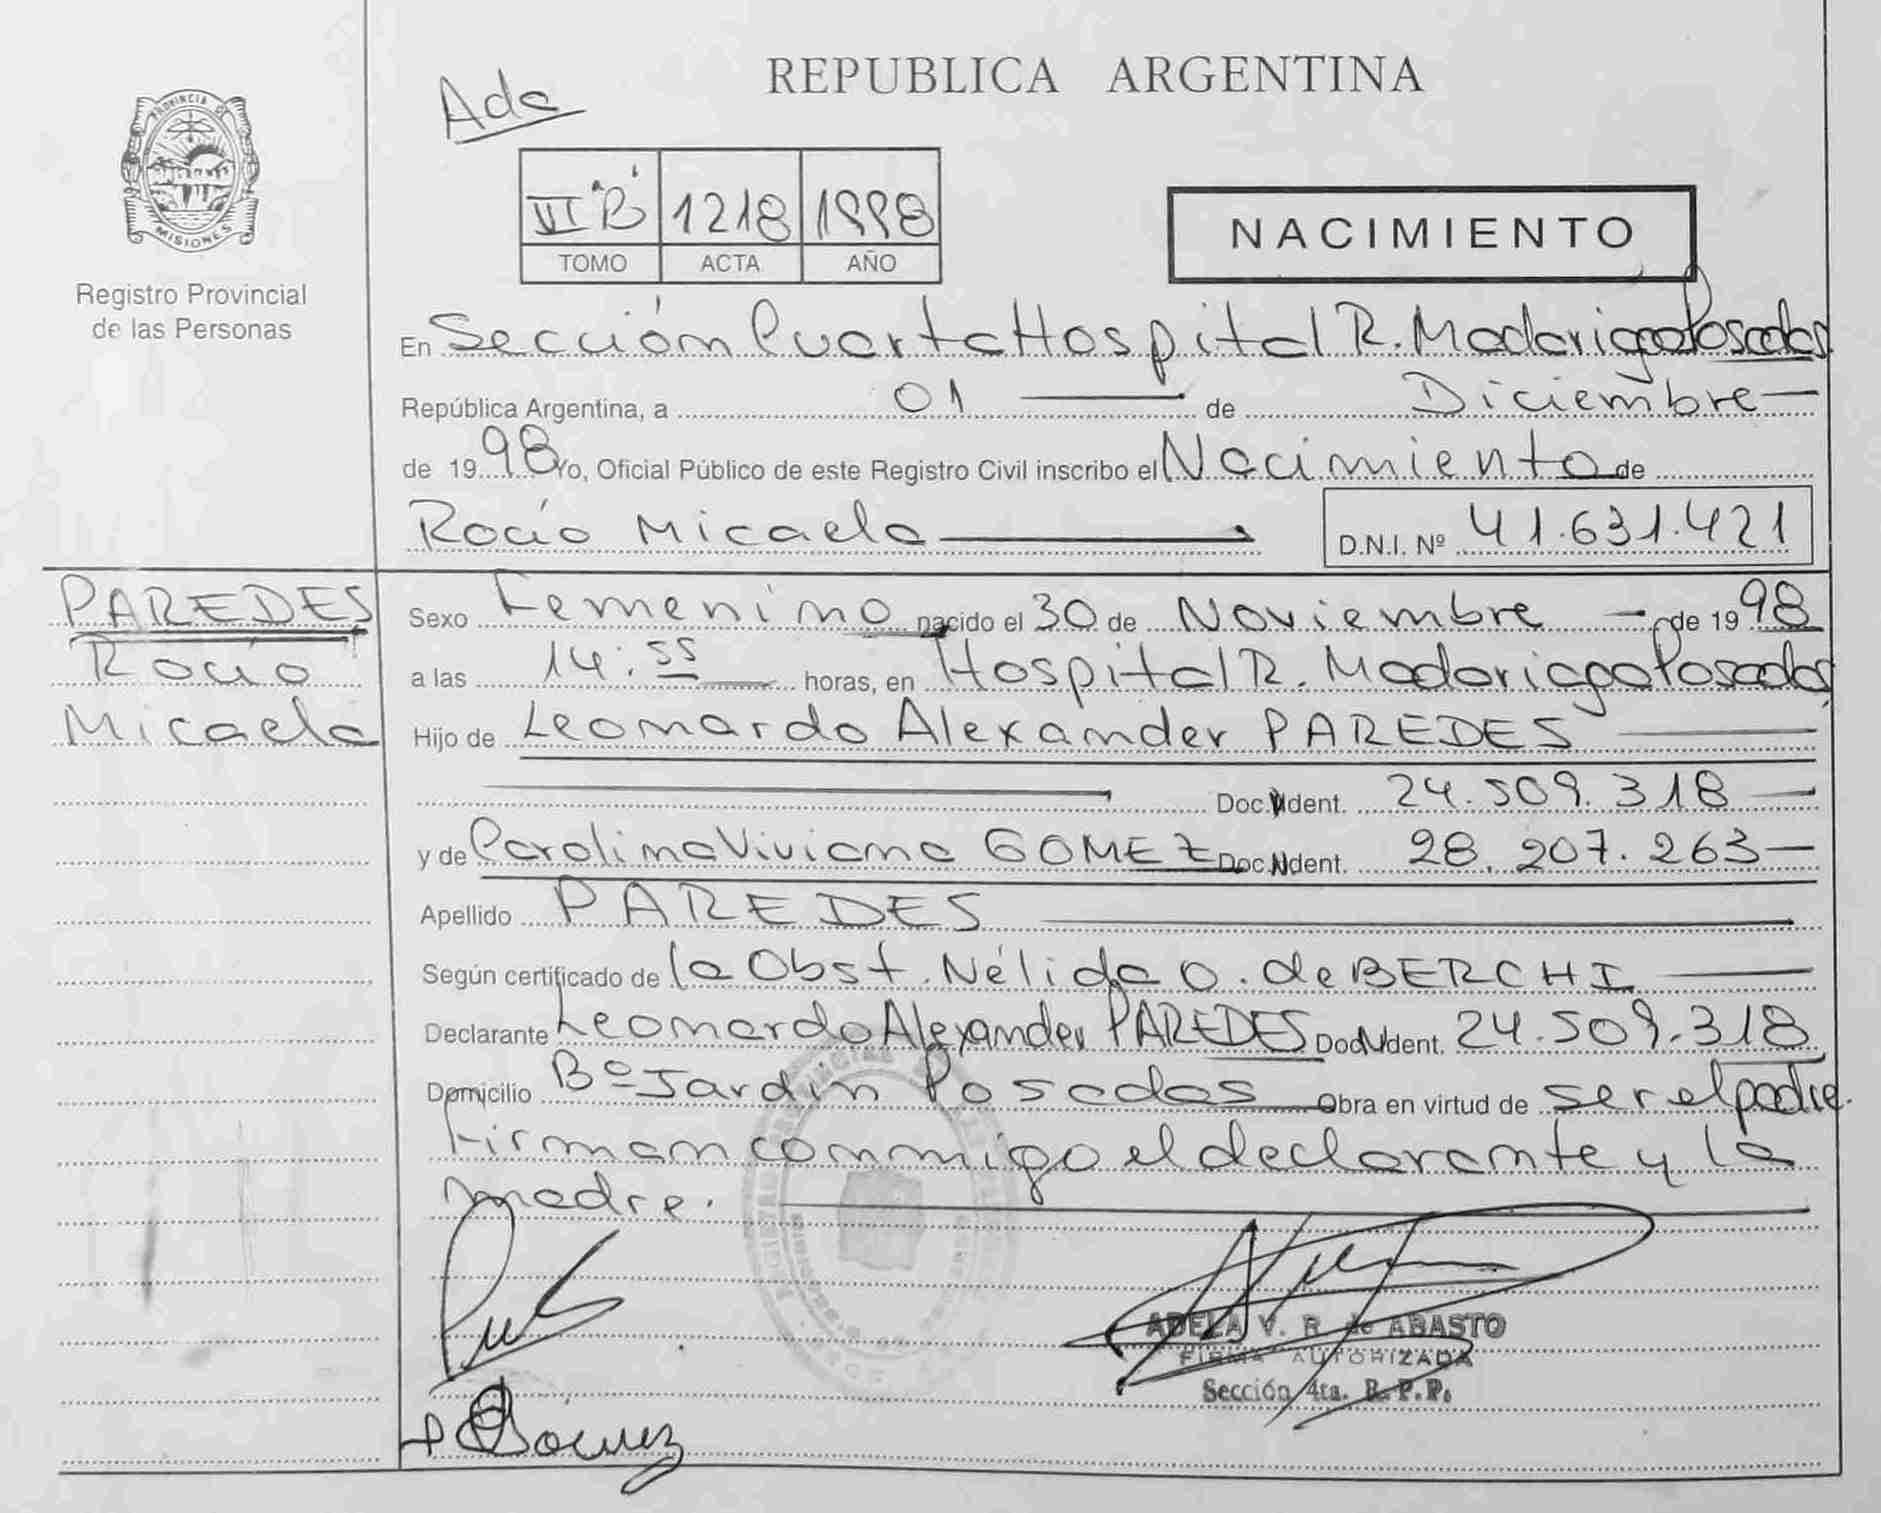 REPUBLICA ARGENTINA
Ada
PROVINCIA DE
MISIONES
Registro Provincial
de las Personas
VI "B" 1218 1998
TOMO ACTA AÑO
NACIMIENTO
En Sección Cuarta Hospital R. Madariaga Posadas
República Argentina, a 01 de Diciembre
de 1998 Yo, Oficial Público de este Registro Civil inscribo el Nacimiento de
Rocío Micaela D.N.I. Nº 41.631.421
PAREDES
Rocío
Micaela
Sexo Femenino nacido el 30 de Noviembre de 1998
a las 14:55 horas, en Hospital R. Madariaga Posadas
Hijo de Leonardo Alexander PAREDES
Doc. Ident. 24.509.318
y de Carolina Viviana GOMEZ Doc. Ident. 28.207.263
Apellido PAREDES
Según certificado de la Obst. Nélida O. de BERCHI
Declarante Leonardo Alexander PAREDES Doc. Ident. 24.509.318
Domicilio Bº Jardín Posadas Obra en virtud de ser el padre.
Firman conmigo el declarante y la
madre.
ADELA V. R. de ABASTO
FIRMA AUTORIZADA
Sección 4ta. R.P.P.